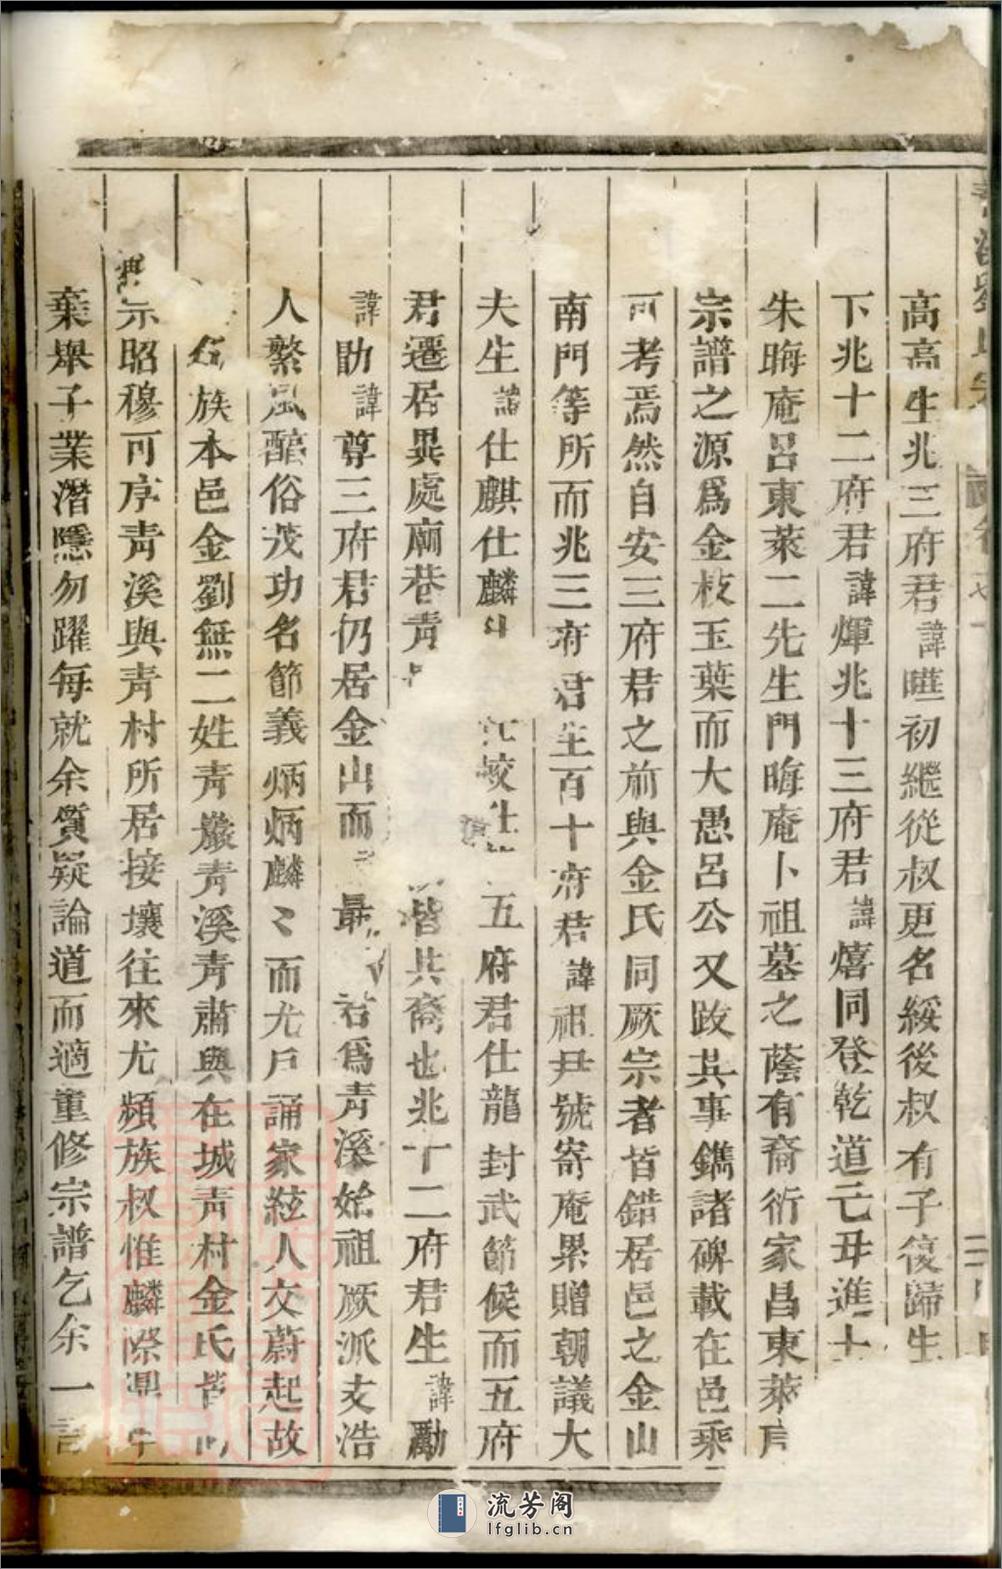 高高生兆三府君諱曄初繼從叔更名綏後叔有子復歸生
下兆十二府君諱煇兆十三府君諱熺同登乾道己丑進士
朱晦庵呂東萊二先生門晦庵卜祖墓之蔭有裔衍家昌東萊
宗譜之源爲金枝玉葉而大愚呂公又跋其事鐫諸碑載在邑乘
可考焉然自安三府君之前與金氏同厥宗者皆錯居邑之金山
南門等所而兆三府君生百十府君諱祖尹號寄庵累贈朝議大
夫生諱仕麒仕麟五府君仕龍封武節候而五府
君遷居異處廟巷青皆共裔也兆十二府君生諱勵
諱助諱尊三府君仍居金山而最君爲青溪始祖厥派支浩
人繁風醇俗茂功名節義炳炳麟〻而尤戶誦家絃人文蔚起故
族本邑金劉無二姓青巖青溪青肅與在城青村金氏皆同
示昭穆可序青溪與青村所居接壤往來尤頻族叔惟麟際
棄舉子業潛隱勿躍每就余質疑論道而適重修宗譜乞余一言